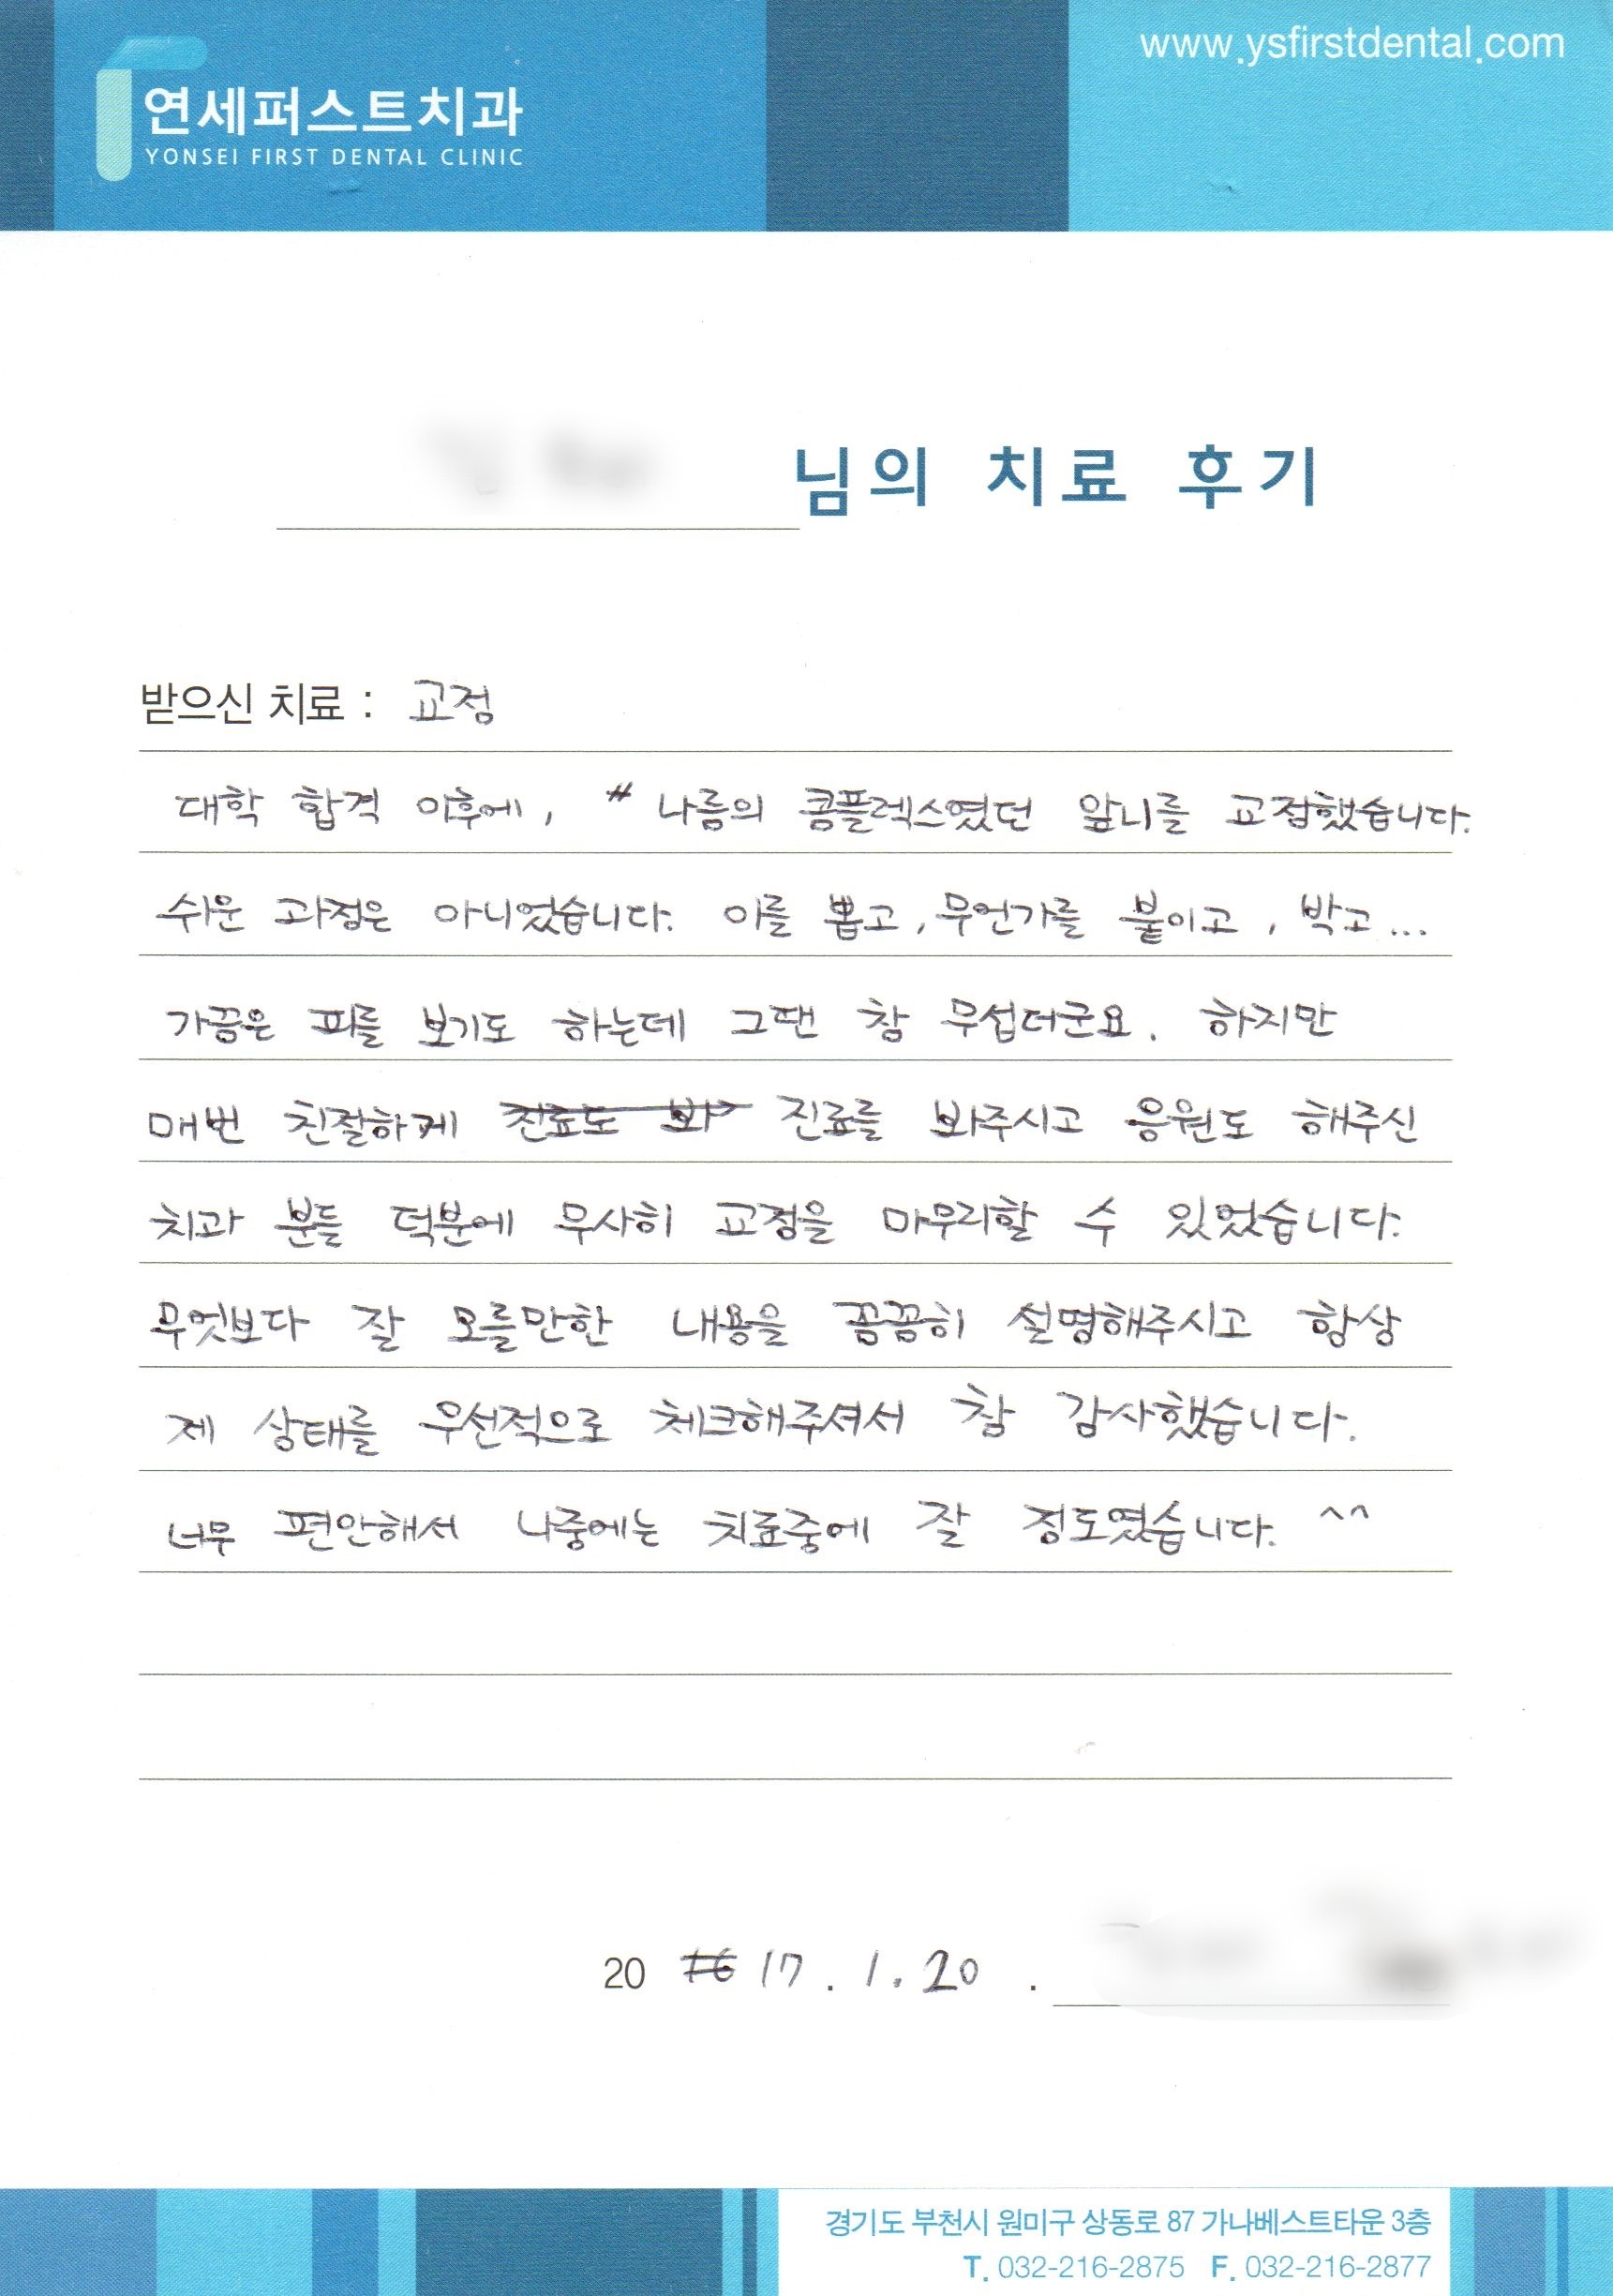 www.ysfirstdental.com
연세퍼스트치과
YONSEI FIRST DENTAL CLINIC
님의 치료 후기
받으신 치료 : 교정
대학 합격 이후에, 나름의 콤플렉스였던 앞니를 교정했습니다.
쉬운 과정은 아니었습니다. 이를 뽑고, 무언가를 붙이고, 박고...
가끔은 피를 보기도 하는데 그땐 참 무섭더군요. 하지만
매번 친절하게 진료도 봐 진료를 봐주시고 응원도 해주신
치과 분들 덕분에 무사히 교정을 마무리할 수 있었습니다.
무엇보다 잘 모를만한 내용을 꼼꼼히 설명해주시고 항상
제 상태를 우선적으로 체크해주셔서 참 감사했습니다.
너무 편안해서 나중에는 치료중에 잘 정도였습니다. ^^
20 17. 1. 20 .
경기도 부천시 원미구 상동로 87 가나베스트타운 3층
T. 032-216-2875 F. 032-216-2877